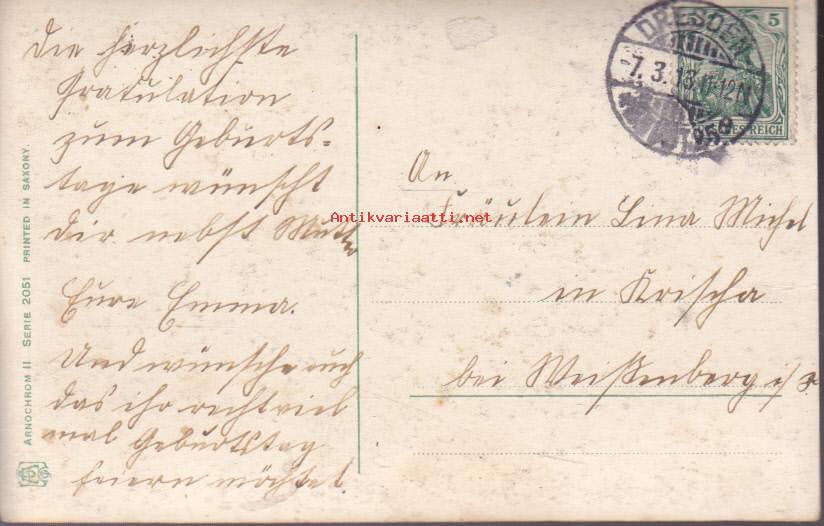 Die herzlichste
Gratulation
zum Geburts-
tage wünscht
Dir nebst Mutter
Eure Emma.
Und wünsche euch
das ihr recht viel
mal Geburtstag
feiern möchtet
ARNOCHROM II SERIE 2051 PRINTED IN SAXONY.
DRESDEN
-7.3.13.11-12N
5
REICH
An
Fräulein Lina Michel
in Krischa
bei Weißenberg i/S
Antikvariaatti.net